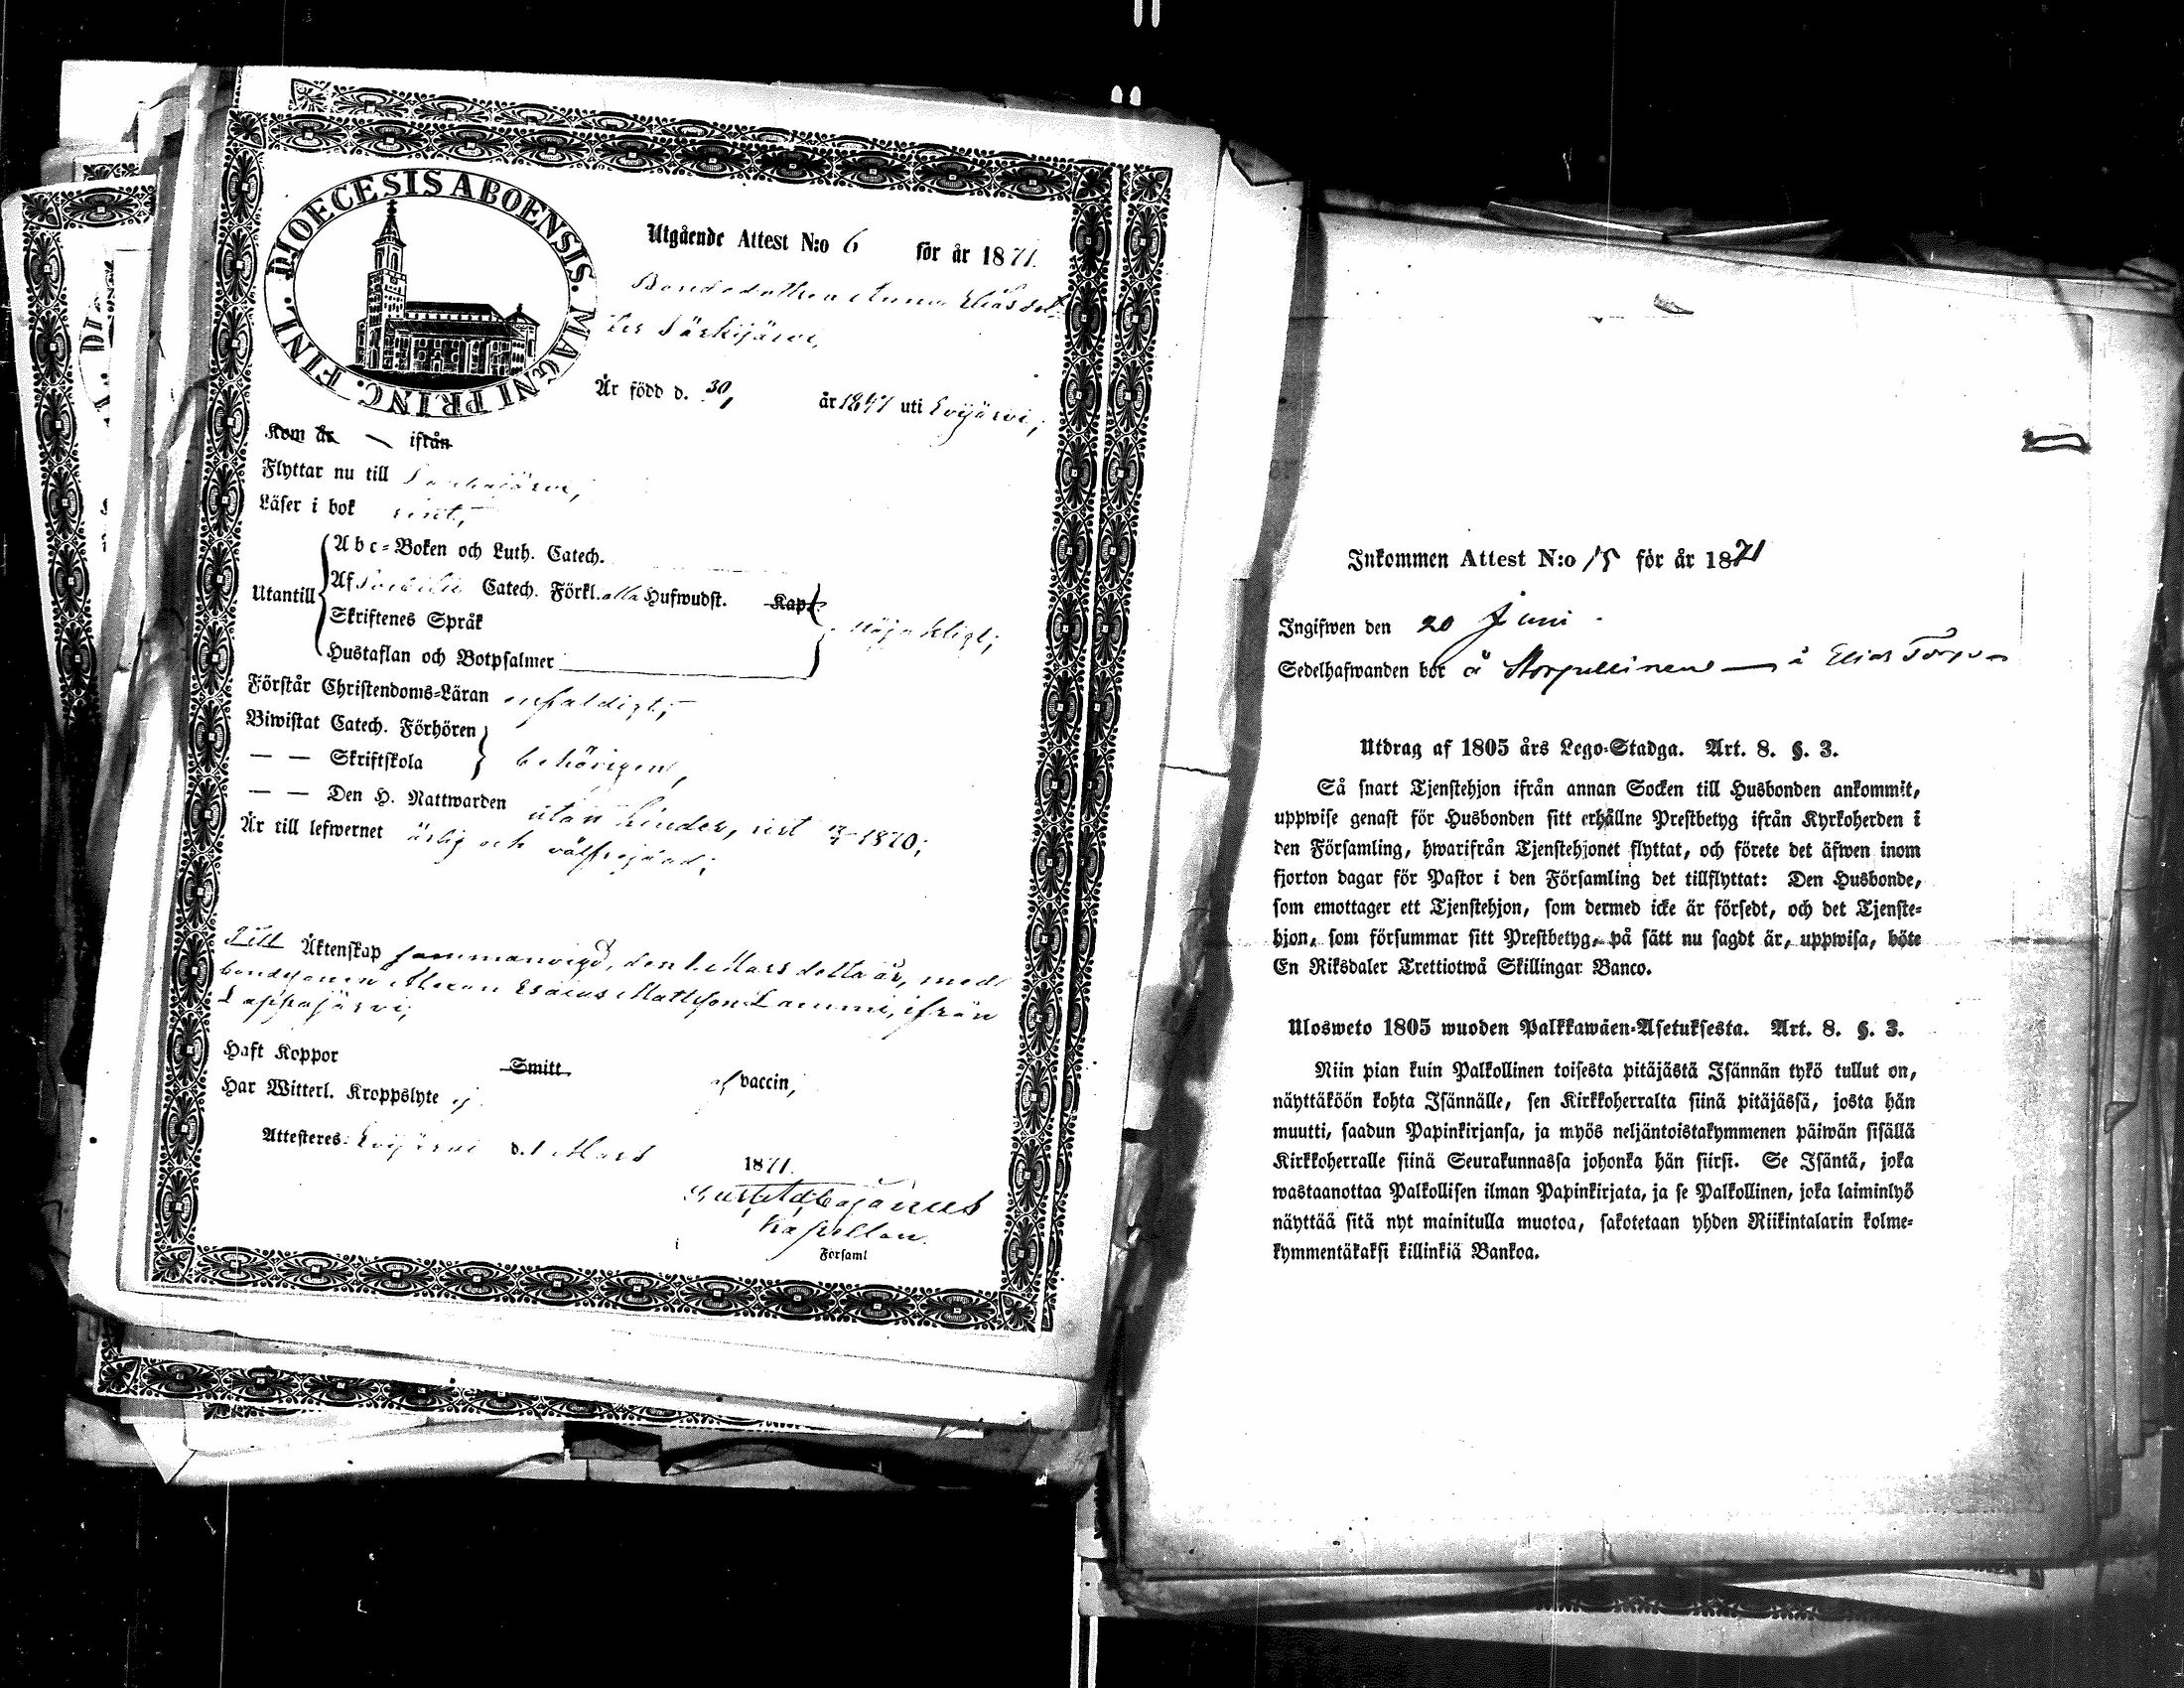 DIOECESIS ABOENSIS. MAGNI PRINC. FINL.
Utgående Attest N:o 6 för år 1871.
Bondedottren Anna Eliasdot-
ter Särkijärvi,
Är född d. 30/ år 1847 uti Evijärvi,
Kom år — ifrån
Flyttar nu till Lappajärvi,
Läser i bok rent,
Utantill
Abc-Boken och Luth. Catech.
Af Catech. Förkl. alla Hufwudst. Kap.
Skriftenes Språk
nöjaktigt;
Hustaflan och Botpsalmer
Förstår Christendoms-Läran enfaldigt;
Biwistat Catech. Förhören
— — Skriftskola
behörigen,
— — Den H. Nattwarden utan hinder, sist 1870;
Är till lefwernet ärlig och välfrejdad;
Till Äktenskap sammanvigd, den 1 Mars detta år, med
bondesonen Esaias Mattsson Lammi, ifrån
Lappajärvi;
Haft Koppor Smitt af vaccin,
Har Witterl. Kroppslyte ej.
Attesteres: Evijärvi d. 1 Mars 1871.
Gust. Ad. Cajanus
Kapellan.
Församl
Inkommen Attest N:o 15 för år 1871
Ingifwen den 20 Juni.
Sedelhafwanden bor å — å Elias
Utdrag af 1805 års Lego-Stadga. Art. 8. §. 3.
Så snart Tjenstehjon ifrån annan Socken till Husbonden ankommit,
uppwise genast för Husbonden sitt erhållne Prestbetyg ifrån Kyrkoherden i
den Församling, hwarifrån Tjenstehjonet flyttat, och förete det äfwen inom
fjorton dagar för Pastor i den Församling det tillflyttat: Den Husbonde,
som emottager ett Tjenstehjon, som dermed icke är försedt, och det Tjenste-
hjon, som försummar sitt Prestbetyg, på sätt nu sagdt är, uppwisa, böte
En Riksdaler Trettiotwå Skillingar Banco.
Ulosweto 1805 wuoden Palkkawäen-Asetuksesta. Art. 8. §. 3.
Niin pian kuin Palkollinen toisesta pitäjästä Isännän tykö tullut on,
näyttäköön kohta Isännälle, sen Kirkkoherralta siinä pitäjässä, josta hän
muutti, saadun Papinkirjansa, ja myös neljäntoistakymmenen päiwän sisällä
Kirkkoherralle siinä Seurakunnassa johonka hän siirsi. Se Isäntä, joka
wastaanottaa Palkollisen ilman Papinkirjata, ja se Palkollinen, joka laiminlyö
näyttää sitä nyt mainitulla muotoa, sakotetaan yhden Riikintalarin kolme-
kymmentäkaksi killinkiä Bankoa.